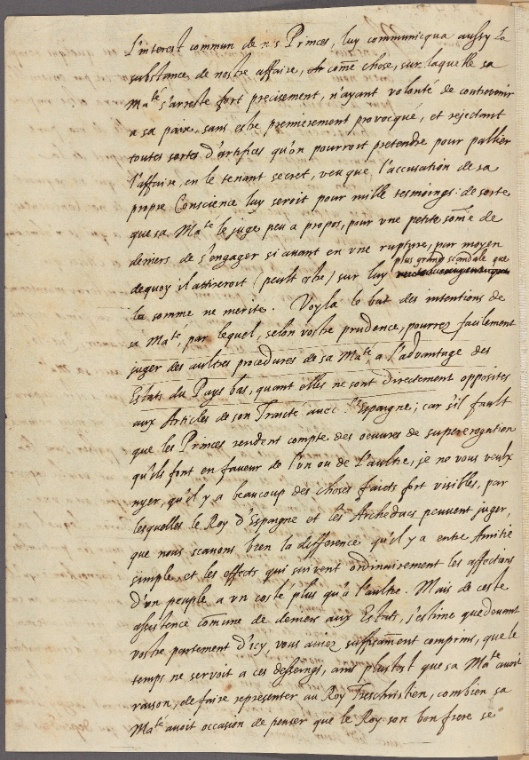 L'interest commun de ns Princes, luy communicqua aussy la
substance, de nostre affaire, chose, sur laquelle sa
Ma.té s'arreste fort precisement, n'ayant volonte de contrevenir
a sa paix, sans estre premierement provocque, et rejectant
toutes sortes d'artifices qu'on pourroit pretendre pour pallier
l'affaire, en le tenant secret, veu que l'accusation de sa
propre Conscience luy seroit pour mille tesmoings: de sorte
que sa Ma.té le juge peu a propos, pour une petite som̃e de
deniers de s'engager si avant en une rupture, par moyen
dequoy il attireroit (peult estre) sur luy plus grand scandale que
la somme ne merite. Voyla le but des intentions de
sa Ma.té, par lequel, selon vostre prudence, pourrez facilement
juger des aultres procedures de sa Ma.té a l'advantage des
Estats du Pays bas, quant elles ne sont directement opposites
aux Articles de son Traicte avec l'Espaigne; car s'il fault
que les Princes rendent compte des oeuvres de supererogation
qu'ils font en faveur de l'un ou de l'aultre, je ne vous veulx
nyer, qu'il y a beaucoup des choses faicts fort visibles, par
lesquelles le Roy d'Espaigne et les Archeducs peuvent juger,
que nous scavons bien la difference qu'il y a entre Amitie
simple et les effects qui suivent ordinairement les affections
d'un peuple a un costé plus qu'a l'aultre. Mais de ceste
assistence com̃une de deniers aux Estats, j'estime que devant
vostre partement d'icy, vous aviez suffisam̃ent comprins, que le
temps ne servoit a ces desseings, ains plustost que sa Ma.té avoit
raison, de faire representer au Roy Treschrestien, combien sa
Ma.té avoit occasion de penser que le Roy son bon frere se